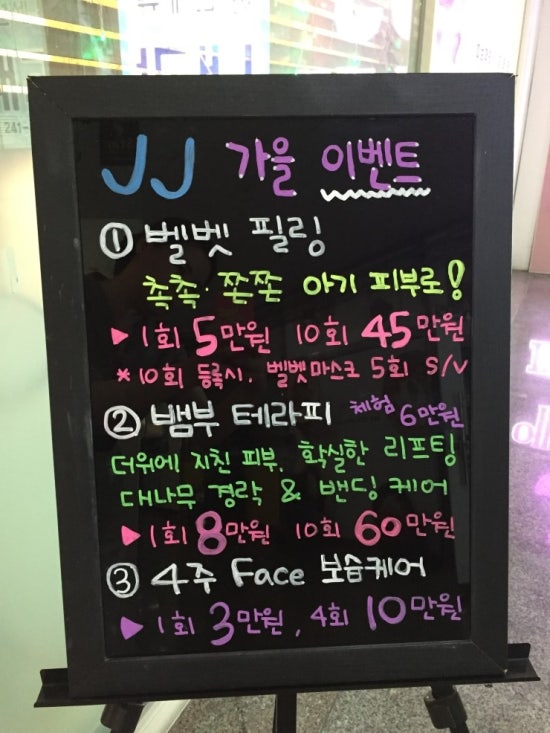 JJ 가을 이벤트
① 벨벳 필링
촉촉·쫀쫀 아기 피부로!
▶ 1회 5만원 10회 45만원
* 10회 등록시, 벨벳마스크 5회 S/V
② 뱀부 테라피 체험 6만원
더위에 지친 피부, 확실한 리프팅
대나무 경락 & 밴딩케어
▶ 1회 8만원 10회 60만원
③ 4주 Face 보습케어
▶ 1회 3만원, 4회 10만원
241-